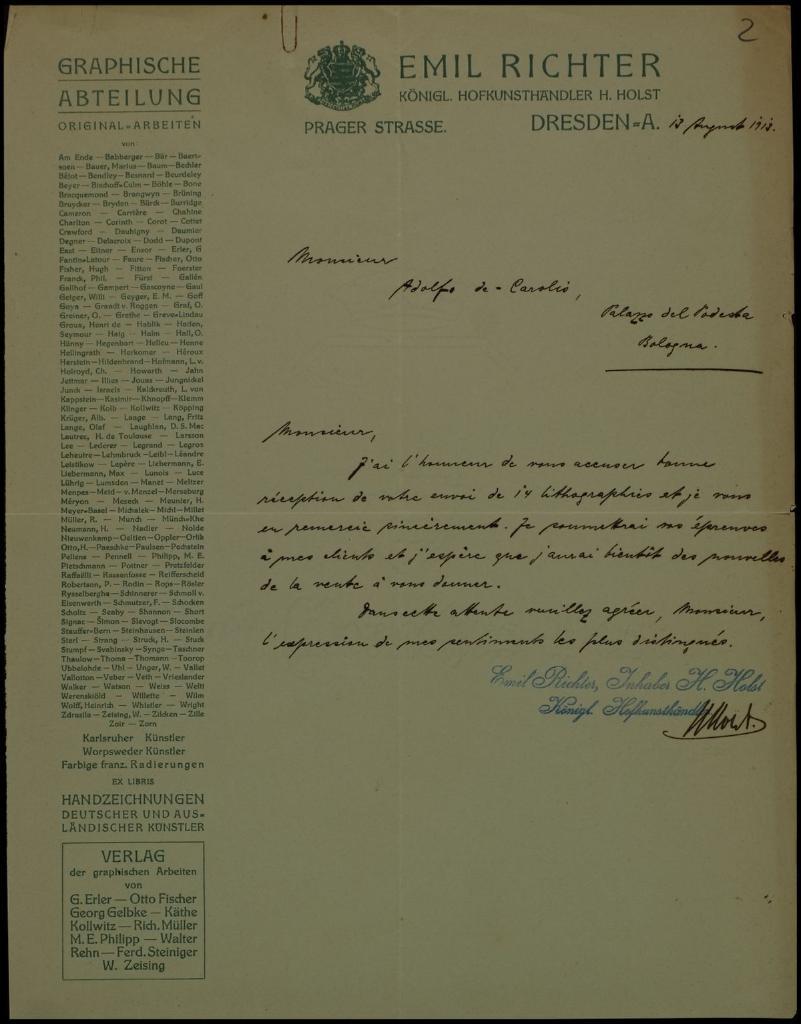 2
GRAPHISCHE
ABTEILUNG
ORIGINAL=ARBEITEN
von:
Am Ende — Babberger — Bär — Baert-
soen — Bauer, Marius — Baum — Bechler
Béjot — Bendley — Besnard — Beurdeley
Beyer — Bischoff=Culm — Böhle — Bone
Bracquemond — Brangwyn — Brüning
Bruycker — Bryden — Bürck — Burridge
Cameron — Carrière — Chahine
Charlton — Corinth — Corot — Cottet
Crawford — Daubigny — Daumier
Degner — Delacroix — Dodd — Dupont
East — Eitner — Ensor — Erler, G
Fantin=Latour — Faure — Fischer, Otto
Fisher, Hugh — Fitton — Foerster
Franck, Phil. — Fürst — Gallén
Gallhof — Gampert — Gascoyne — Gaul
Geiger, Willi — Geyger, E. M. — Goff
Goya — Grandt v. Roggen — Graf, O.
Greiner, O. — Grethe — Greve=Lindau
Groux, Henri de — Hablik — Haden,
Seymour — Haig — Halm — Hall, O.
Hänny — Hegenbart — Helleu — Henne
Hellingrath — Herkomer — Héroux
Herstein — Hildenbrand — Hofmann, L. v.
Holroyd, Ch. — Howarth — Jahn
Jettmar — Illies — Jouas — Jungnickel
Junck — Israels — Kalckreuth, L. von
Kappstein — Kasimir — Khnopff — Klemm
Klinger — Kolb — Kollwitz — Köpping
Krüger, Alb. — Laage — Lang, Fritz
Lange, Olaf — Laughlan, D. S. Mac
Lautrec, H. de Toulouse — Larsson
Lee — Lederer — Legrand — Legros
Leheutre — Lehmbruck — Leibl — Léandre
Leistikow — Lepère — Liebermann, E.
Liebermann, Max — Lunois — Luce
Lührig — Lumsden — Manet — Meltzer
Menpes — Meid — v. Menzel — Merseburg
Méryon — Meseck — Meunier, H.
Meyer=Basel — Michalek — Michl — Millet
Müller, R. — Munch — Münch=Khe
Neumann, H. — Nadler — Nolde
Nieuwenkamp — Oeltjen — Oppler — Orlik
Otto, H. — Paeschke — Paulsen — Pechstein
Pellens — Pennell — Philipp, M. E.
Pietschmann — Pottner — Pretzfelder
Raffaëlli — Rassenfosse — Reifferscheid
Robertson, P. — Rodin — Rops — Rösler
Rysselberghe — Schinnerer — Schmoll v.
Eisenwerth — Schmutzer, F. — Schocken
Scholtz — Seaby — Shannon — Short
Signac — Simon — Slevogt — Slocombe
Stauffer=Bern — Steinhausen — Steinlen
Sterl — Strang — Struck, H. — Stuck
Stumpf — Svabinsky — Synge — Taschner
Thaulow — Thoma — Thomann — Toorop
Ubbelohde — Uhl — Unger, W. — Vallet
Vallotton — Veber — Veth — Vrieslander
Walker — Watson — Weiss — Welti
Werenskiöld — Willette — Wilm
Wolff, Heinrich — Whistler — Wright
Zdrasila — Zeising, W. — Zilcken — Zille
Zoir — Zorn
Karlsruher Künstler
Worpsweder Künstler
Farbige franz. Radierungen
EX LIBRIS
HANDZEICHNUNGEN
DEUTSCHER UND AUS=
LÄNDISCHER KÜNSTLER
VERLAG
der graphischen Arbeiten
von
G. Erler — Otto Fischer
Georg Gelbke — Käthe
Kollwitz — Rich. Müller
M. E. Philipp — Walter
Rehn — Ferd. Steiniger
W. Zeising
EMIL RICHTER
KÖNIGL. HOFKUNSTHÄNDLER H. HOLST
PRAGER STRASSE. DRESDEN=A. August
Monsieur
Adolfo de-Carolis,
Palazzo del Podesta
Bologna.
Monsieur,
J'ai l'honneur de vous accuser bonne
réception de votre envoi de 14 lithographies et je vous
en remercie sincèrement. Je soumettrai vos épreuves
à mes clients et j'espère que j'aurai bientôt des nouvelles
de la vente à vous donner.
Dans cette attente veuillez agréer, Monsieur,
l'expression de mes sentiments les plus distingués.
Emil Richter, Inhaber H. Holst
Königl. Hofkunsthändler
H Holst.